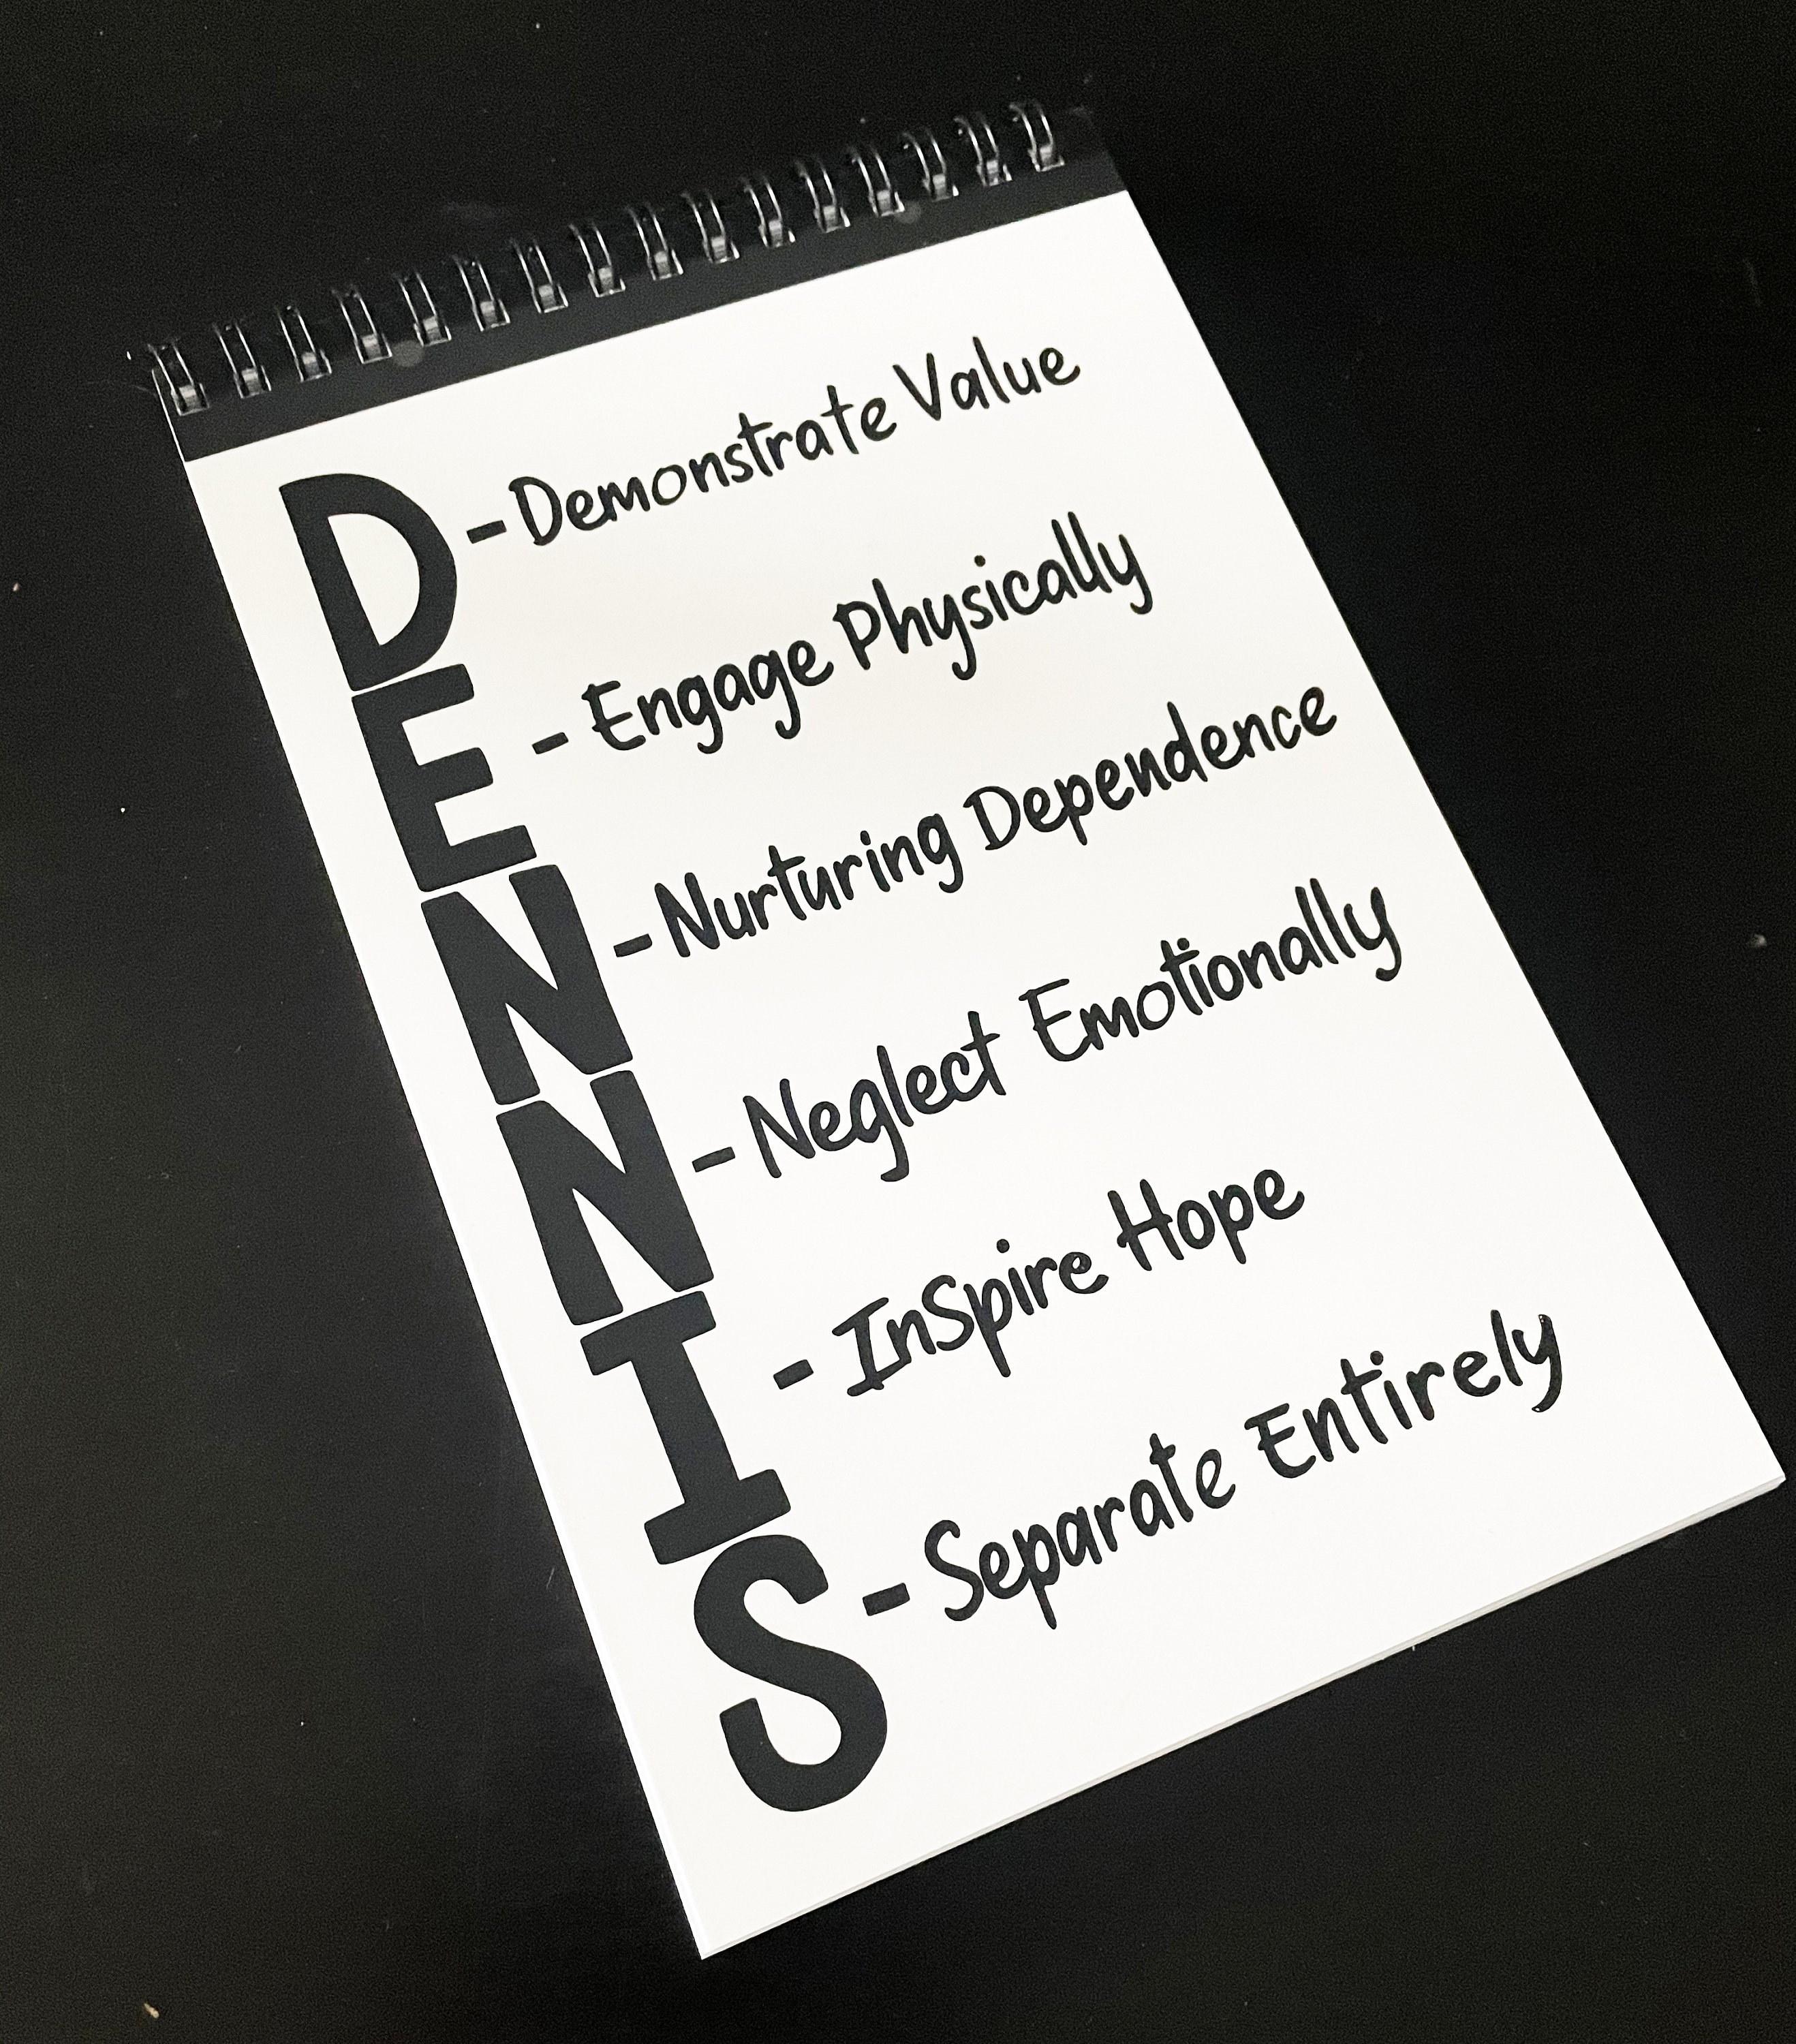 D - Demonstrate Value
E - Engage Physically
N - Nurturing Dependence
N - Neglect Emotionally
I - InSpire Hope
S - Separate Entirely